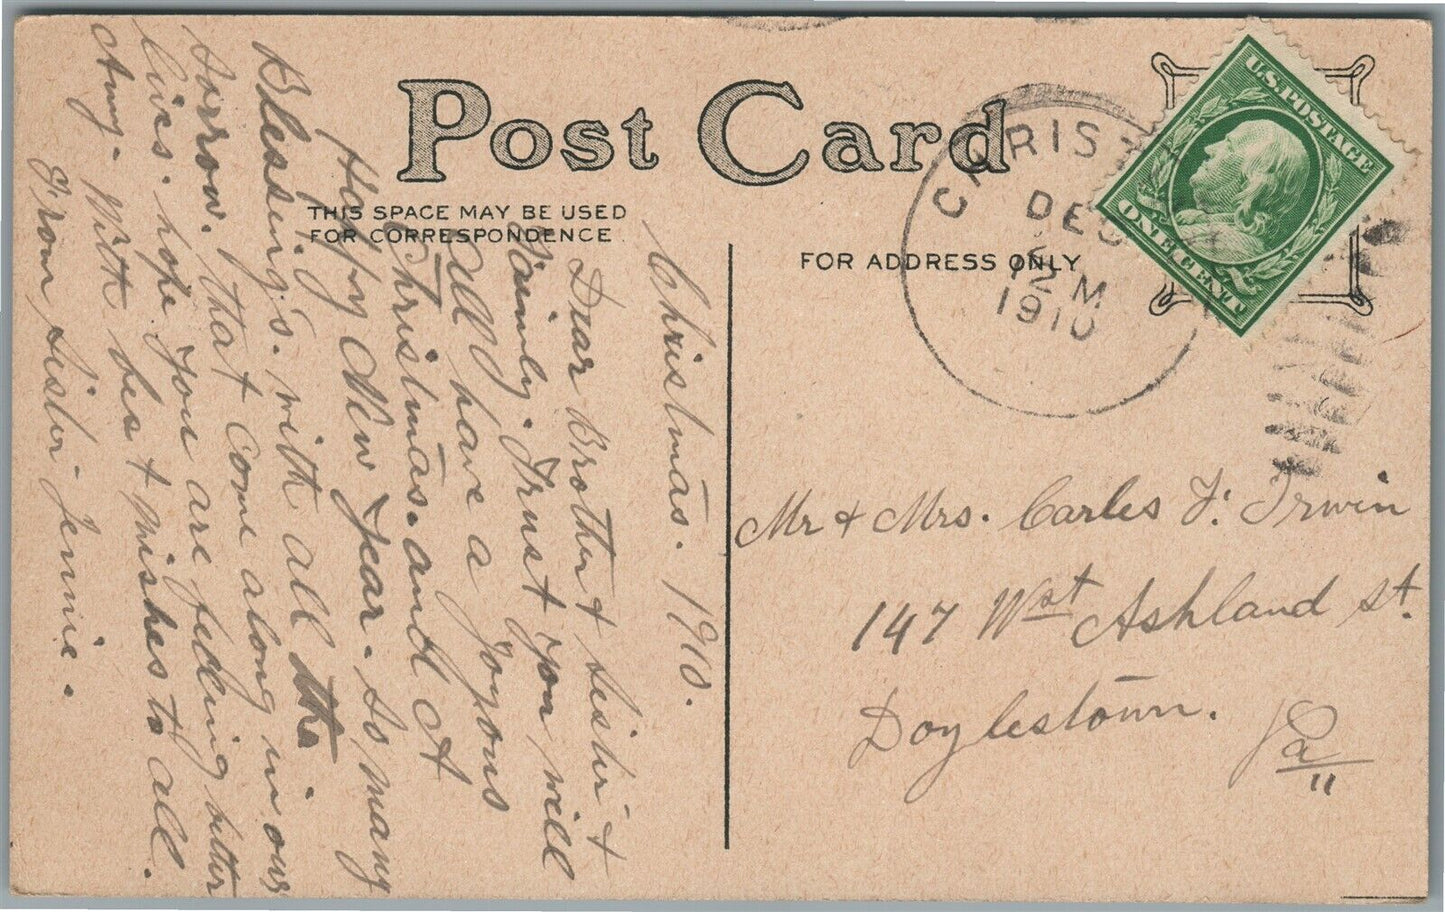 Post Card
THIS SPACE MAY BE USED
FOR CORRESPONDENCE
FOR ADDRESS ONLY
U.S. POSTAGE
ONE CENT
CHRIST
DEC
12 M
1910
Christmas. 1910.
Dear Brother & Sister &
Family. Trust you will
all have a Joyous
Christmas. and A
Happy New Year. So many
Blessing,s. with all the
Sorrow. that Come along in our
lives. hope you are feeling better
Amy. With bes & wishes to all.
From Sister Jennie.
Mr & Mrs. Carles F. Irwin
147 West Ashland St.
Doylestown.
Pa